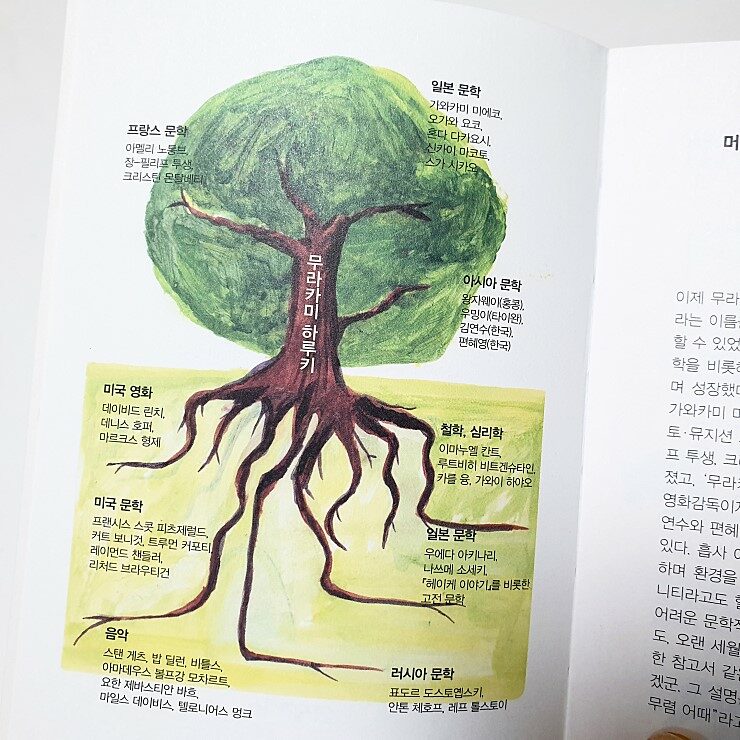 프랑스 문학
아멜리 노통브,
장-필리프 투생,
크리스틴 몬탈베티
일본 문학
가와카미 미에코,
오가와 요코,
혼다 다카요시,
신카이 마코토,
스가 시카오
무라카미 하루키
아시아 문학
왕자웨이(홍콩),
우밍이(타이완),
김연수(한국),
편혜영(한국)
미국 영화
데이비드 린치,
데니스 호퍼,
마르크스 형제
철학, 심리학
이마누엘 칸트,
루트비히 비트겐슈타인,
카를 융, 가와이 하야오
미국 문학
프랜시스 스콧 피츠제럴드,
커트 보니것, 트루먼 커포티,
레이먼드 챈들러,
리처드 브라우티건
일본 문학
우에다 아키나리,
나쓰메 소세키,
『헤이케 이야기』를 비롯한
고전 문학
음악
스탠 게츠, 밥 딜런, 비틀스,
아마데우스 볼프강 모차르트,
요한 제바스티안 바흐,
마일스 데이비스, 텔로니어스 멍크
러시아 문학
표도르 도스토옙스키,
안톤 체호프, 레프 톨스토이
머
이제 무라
라는 이름
할 수 있었
학을 비롯
며 성장했
가와카미 미
토·뮤지션
프 투생, 크
졌고, '무라
영화감독이
연수와 편혜
있다. 흡사
하며 환경을
니티라고도 할
어려운 문학
도, 오랜 세월
한 참고서 같은
겠군. 그 설명
무렴 어때"라고